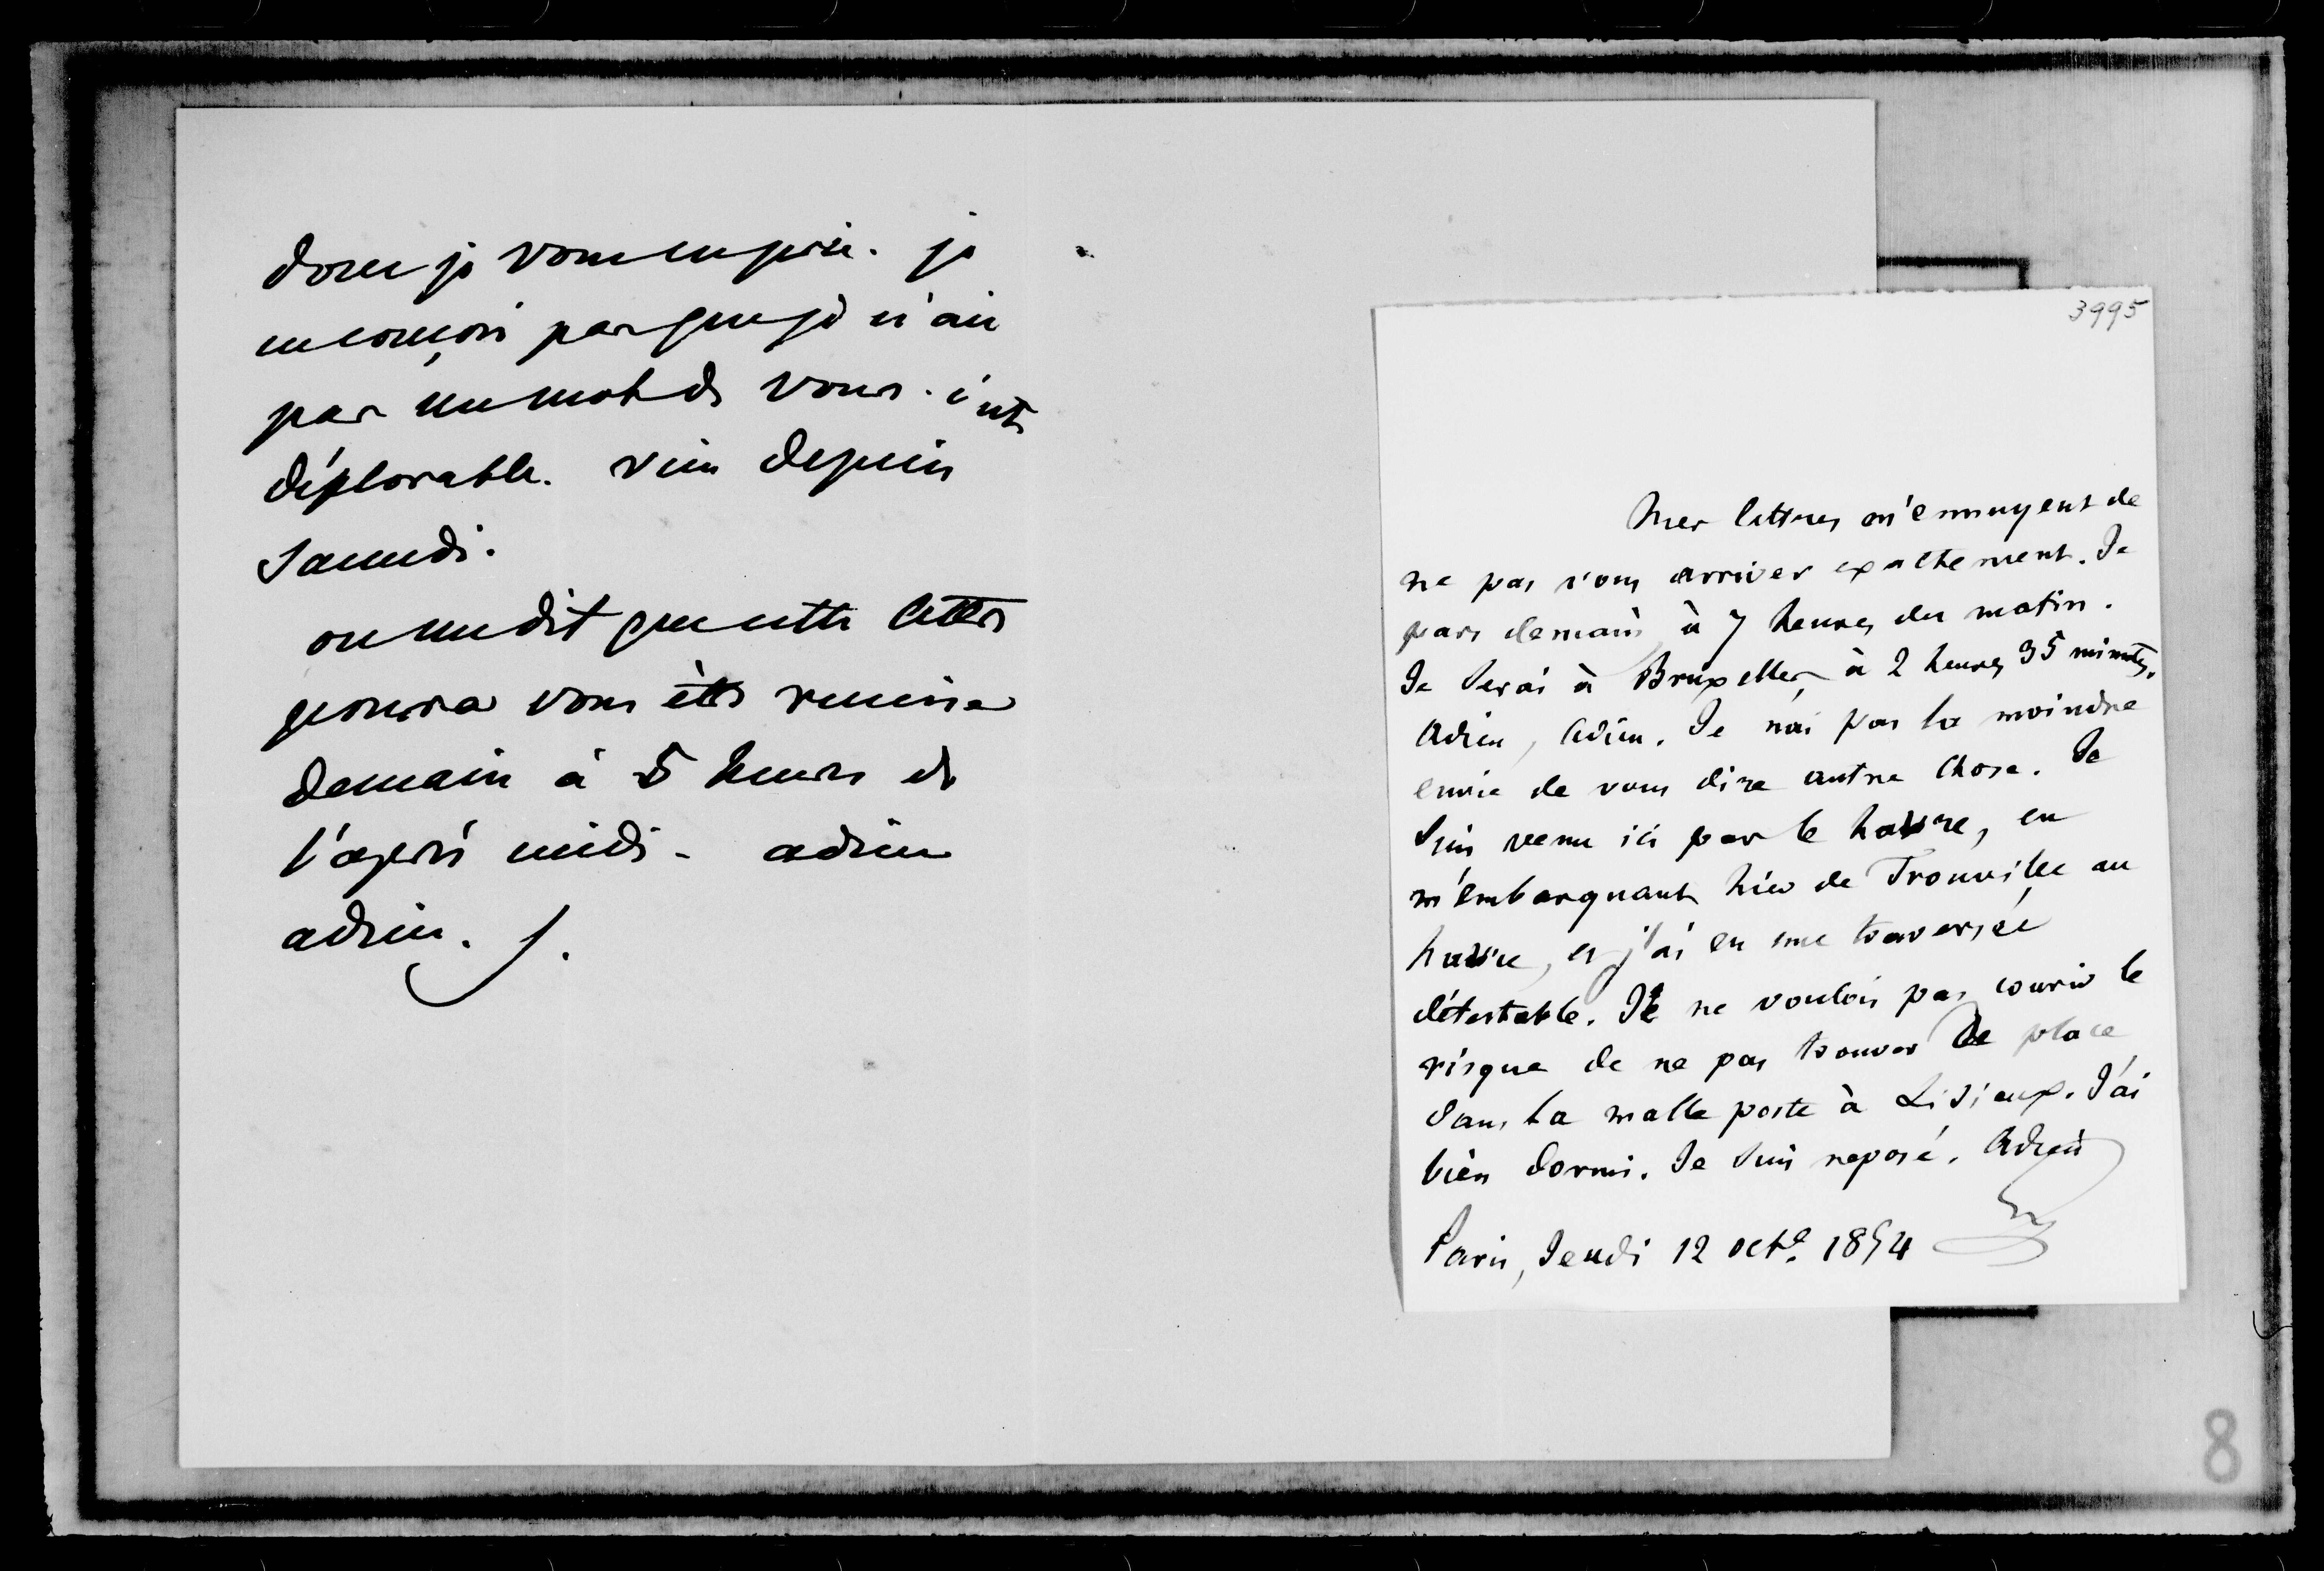 donc je vous en prie. je
ne conçois pas que je n'aie
pas un mot de vous. c'est
déplorable. rien depuis
samedi.
on me dit que cette lettre
pourra vous être remise
demain à 5 heures de
l'après midi - adieu
adieu. 
3995
Mes lettres m'ennuyent de
ne pas vous arriver exactement. Je
pars demain, à 7 heures du matin.
Je serai à Bruxelles, à 2 heures 35 minutes.
Adieu, Adieu. Je n'ai pas la moindre
envie de vous dire autre chose. Je
suis venu ici par le havre, en
m'embarquant hier de Trouville au
havre, et j'ai eu une traversée
détestable. Je ne voulois pas courir le
risque de ne pas trouver de place
dans la malle poste à Lisieux. J'ai
bien dormi. Je suis reposé. Adieu
Paris, Jeudi 12 octe. 1854
8